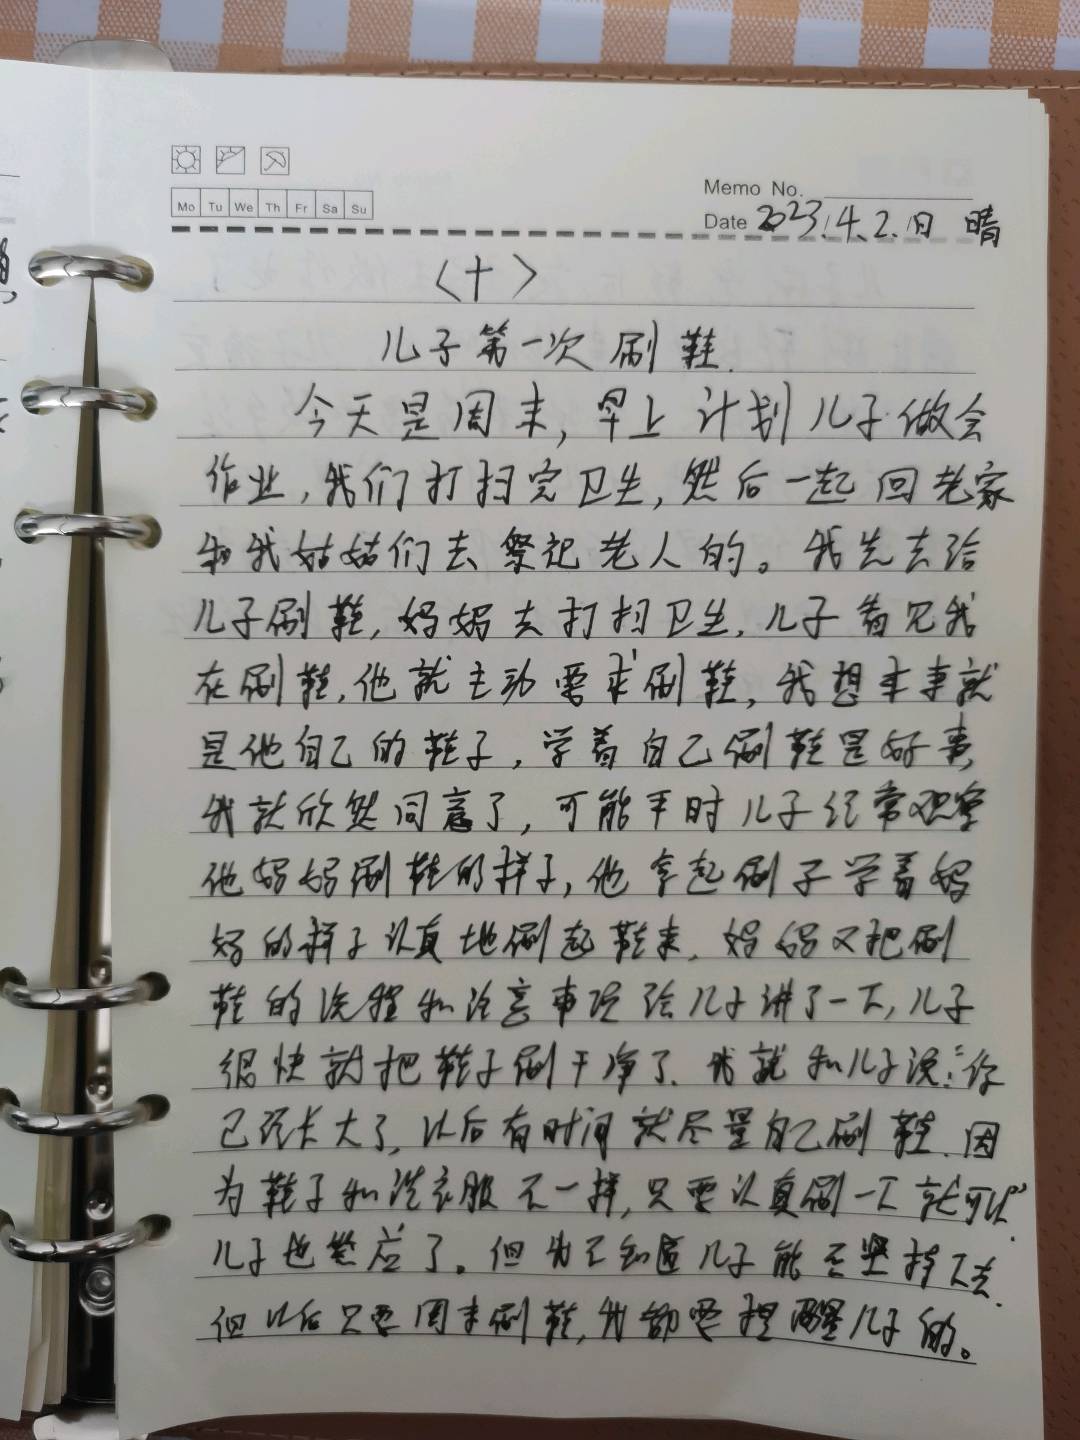 Memo No.
Mo Tu We Th Fr Sa Su
Date 2023.4.2.日 晴
<十>
儿子第一次刷鞋.
今天是周末,早上计划儿子做会
作业,我们打扫完卫生,然后一起回老家
和我姑姑们去祭祀老人的。我先去给
儿子刷鞋,妈妈去打扫卫生,儿子看见我
在刷鞋,他就主动要求刷鞋,我想本来就
是他自己的鞋子,学着自己刷鞋是好事,
我就欣然同意了,可能平时儿子经常观察
他妈妈刷鞋的样子,他拿起刷子学着妈
妈的样子认真地刷起鞋来,妈妈又把刷
鞋的流程和注意事项给儿子讲了一下,儿子
很快就把鞋子刷干净了.我就和儿子说:“你
已经长大了,以后有时间就尽量自己刷鞋.因
为鞋子和洗衣服不一样,只要认真刷一下就可以”.
儿子也答应了。但我不知道儿子能否坚持下去.
但以后只要周末刷鞋,我都要提醒儿子的。